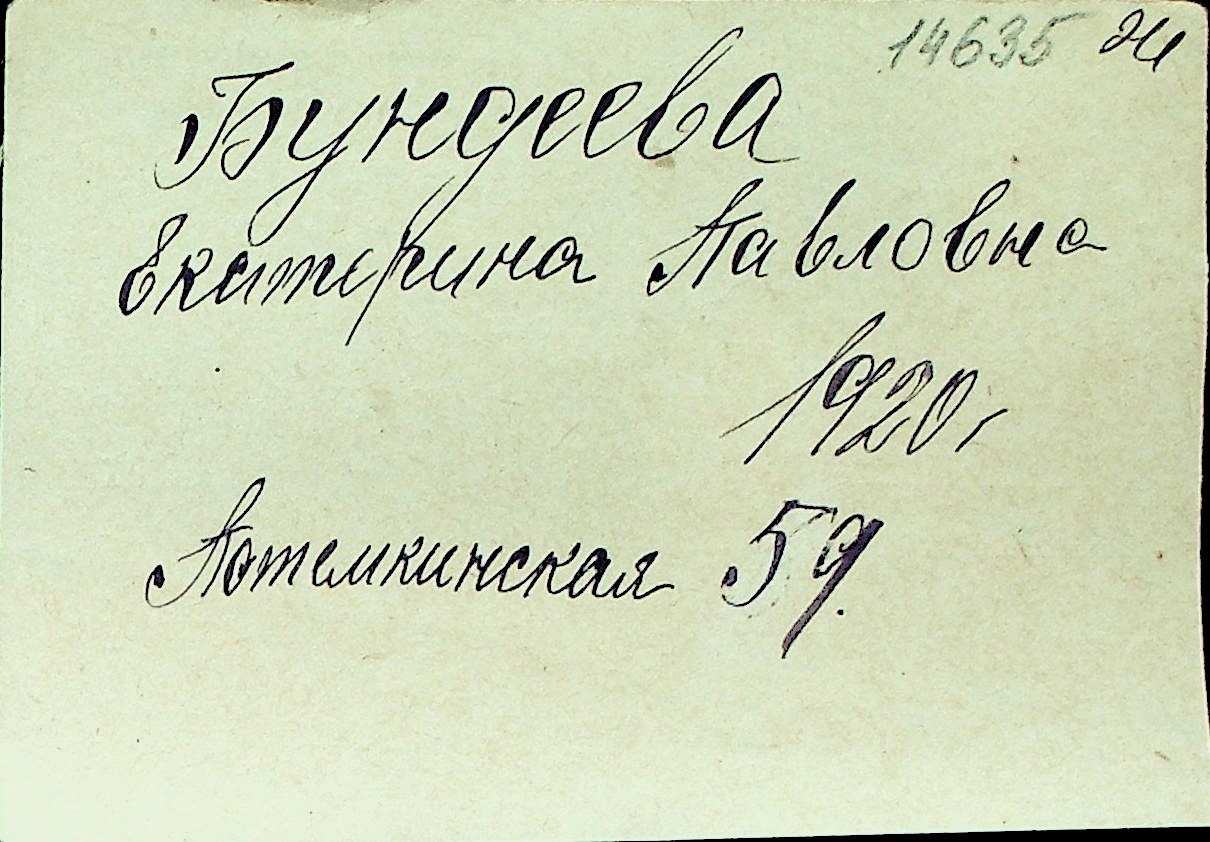 14635 Ж
Бундеева
Екатерина Павловна
1920г
Потемкинская 59.